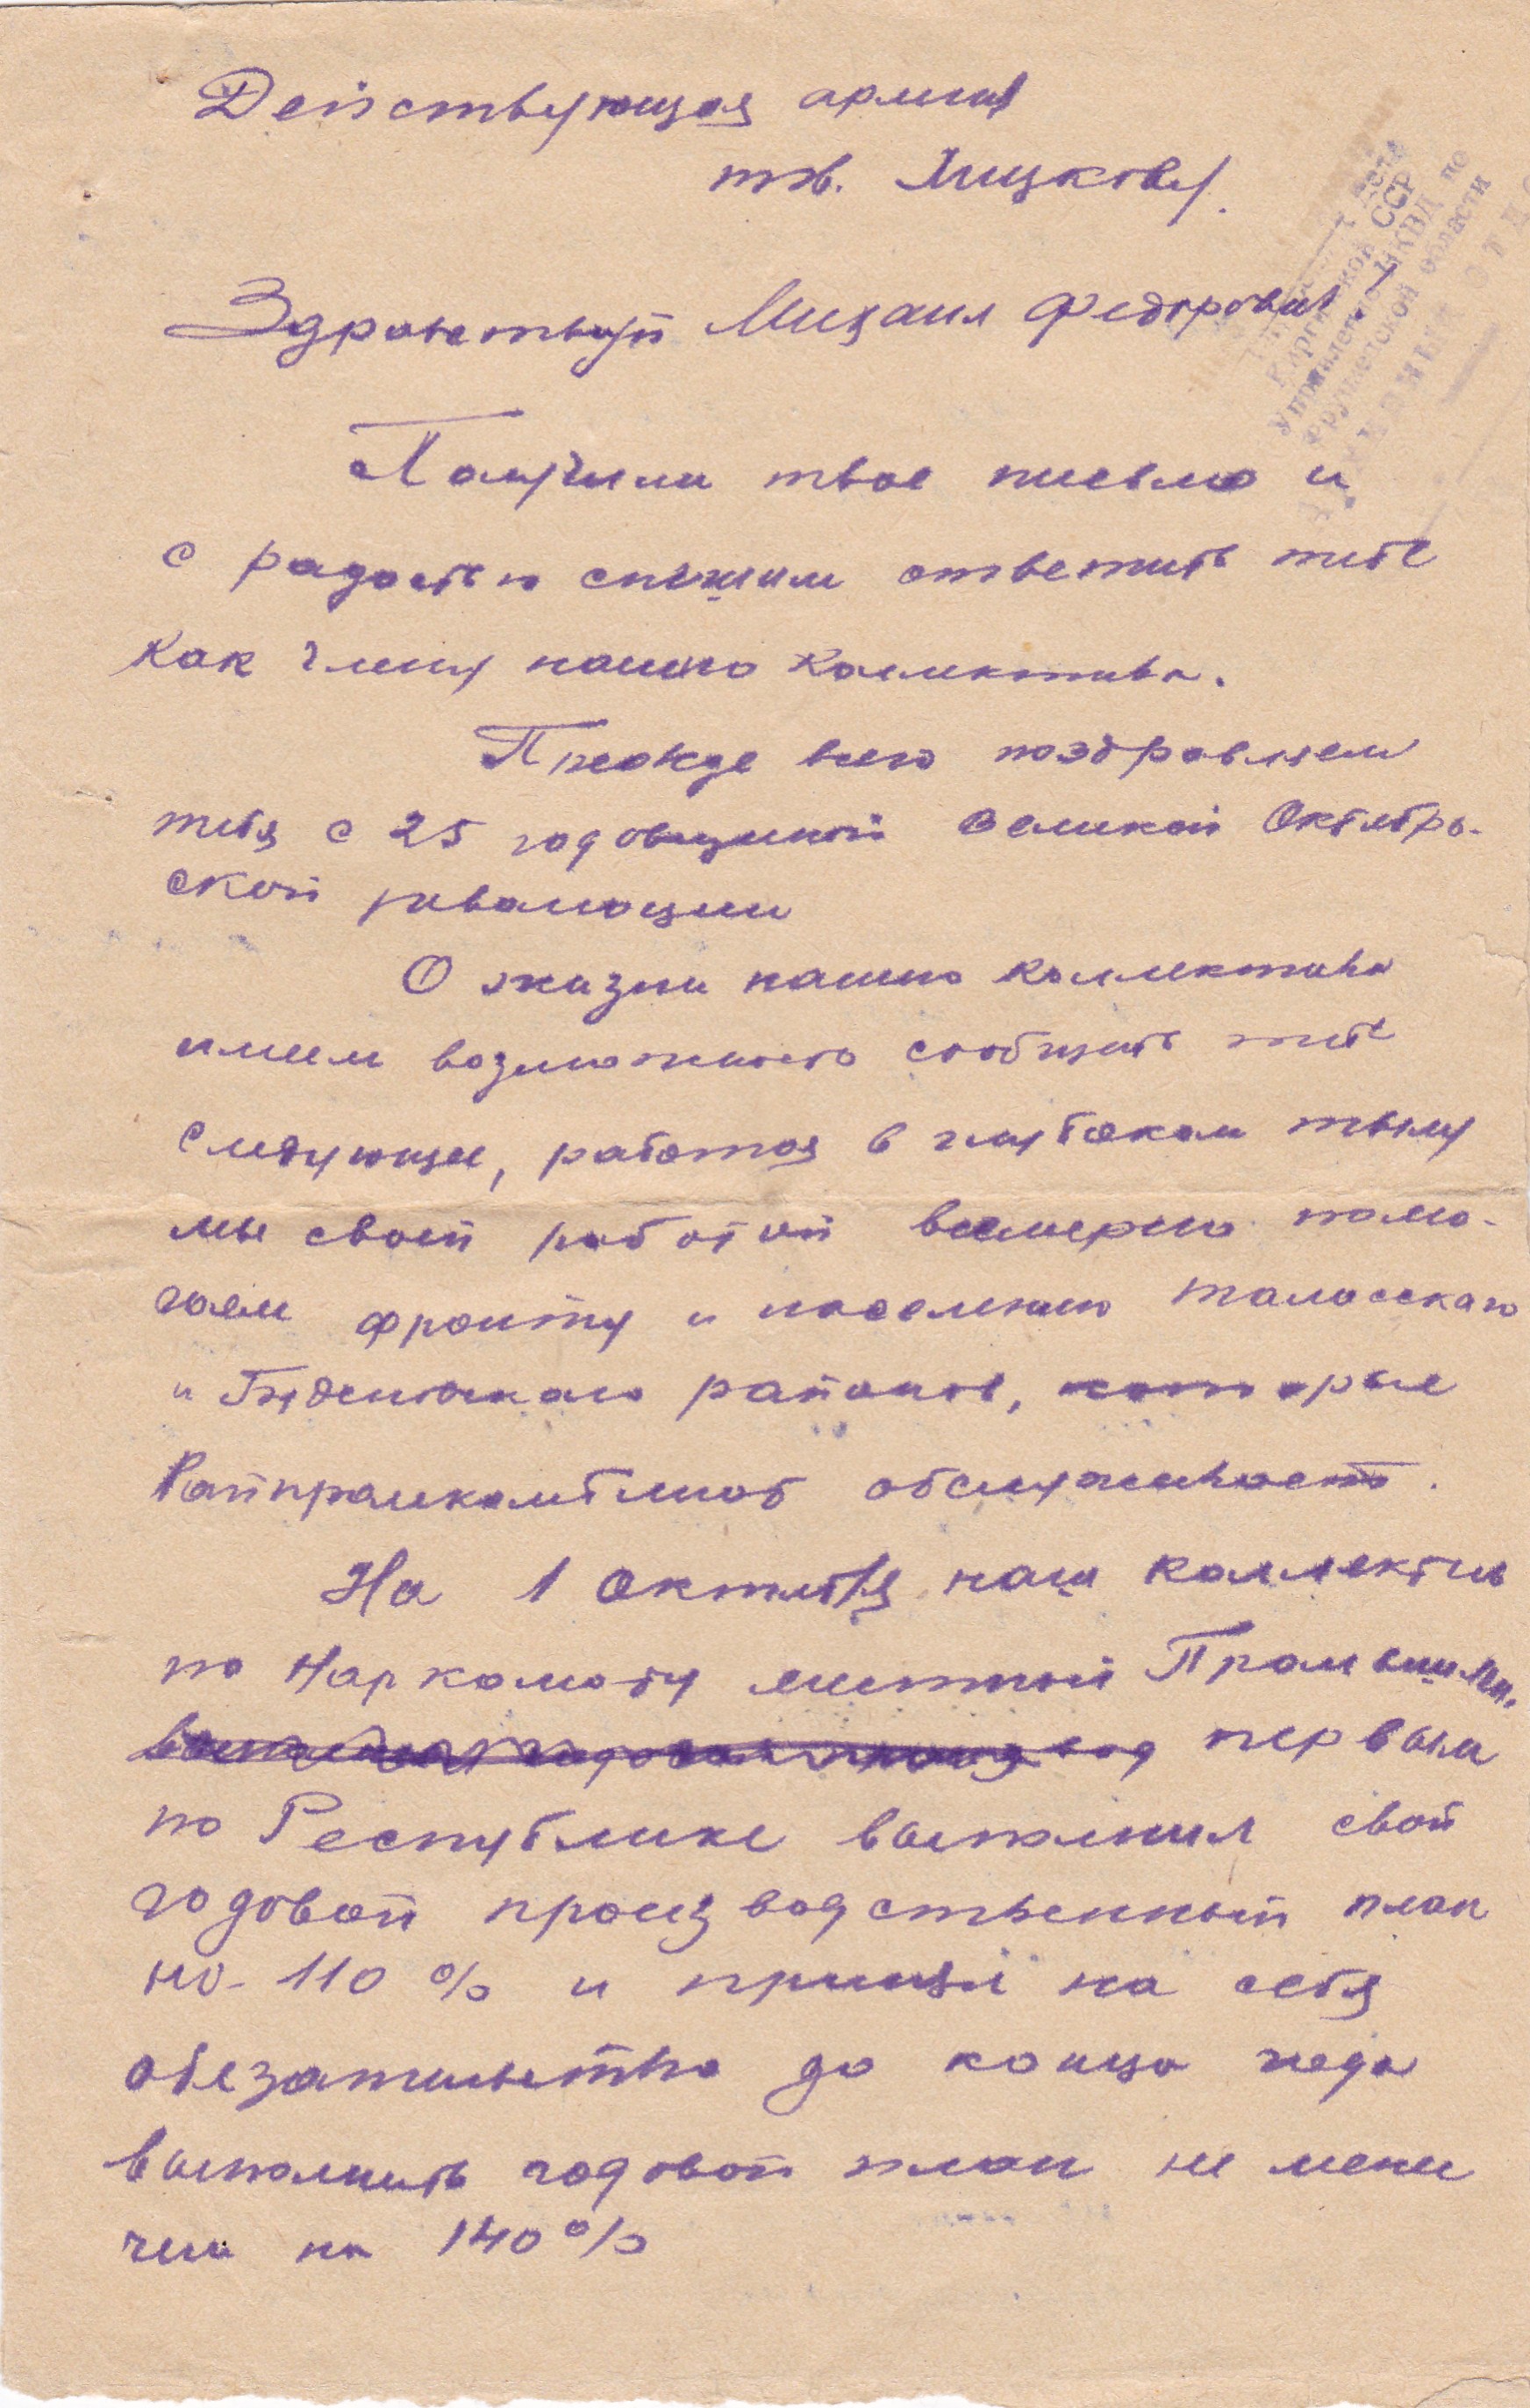 Действующая армия
тов. Лицкову.
Здравствуй Михаил Федорович!
Получили твое письмо и
с радостью спешим ответить тебе
как члену нашего коллектива.
Прежде всего поздравляем
тебя с 25 годовщиной Великой Октябрь-
ской революции
О жизни нашего коллектива
имеем возможность сообщить тебе
следующее, работая в глубоком тылу
мы своей работой всемерно помо-
гаем фронту и населению Таласского
и Буденовского районов, которые
Райпромкомбинат обслуживает.
На 1 Октября наш коллектив
по Наркомату местной Промышлен.
первым
по Республике выполнил свой
годовой производственный план
на 110 % и принял на себя
обезательство до конца года
выполнить годовой план не менее
чем на 140 %
Киргизской ССР
Управление НКВД по
Фрунзенской области